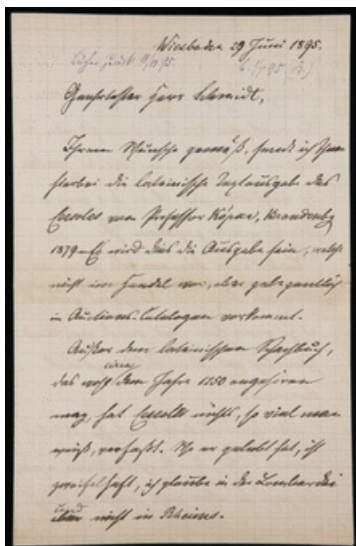 Wiesbaden 29 Juni 1895.
Geehrtester Herr Schmidt,
Ihrem Wunsche gemäß, sende ich Ihnen
hierbei die lateinische Textausgabe des
Cessoles von Professor Köpke, Brandenbg
1879. Es wird dies die Ausgabe sein, welche
nicht im Handel war, aber gelegentlich
in Auctions-Catalogen vorkommt.
Außer dem lateinischen Schachbuch,
das wohl dem Jahre 1250 angehören
mag, hat Cessoles nichts, so viel man
weiß, verfaßt. Wo er gelebt hat, ist
zweifelhaft, ich glaube in der Lombardei
und nicht in Rheims.